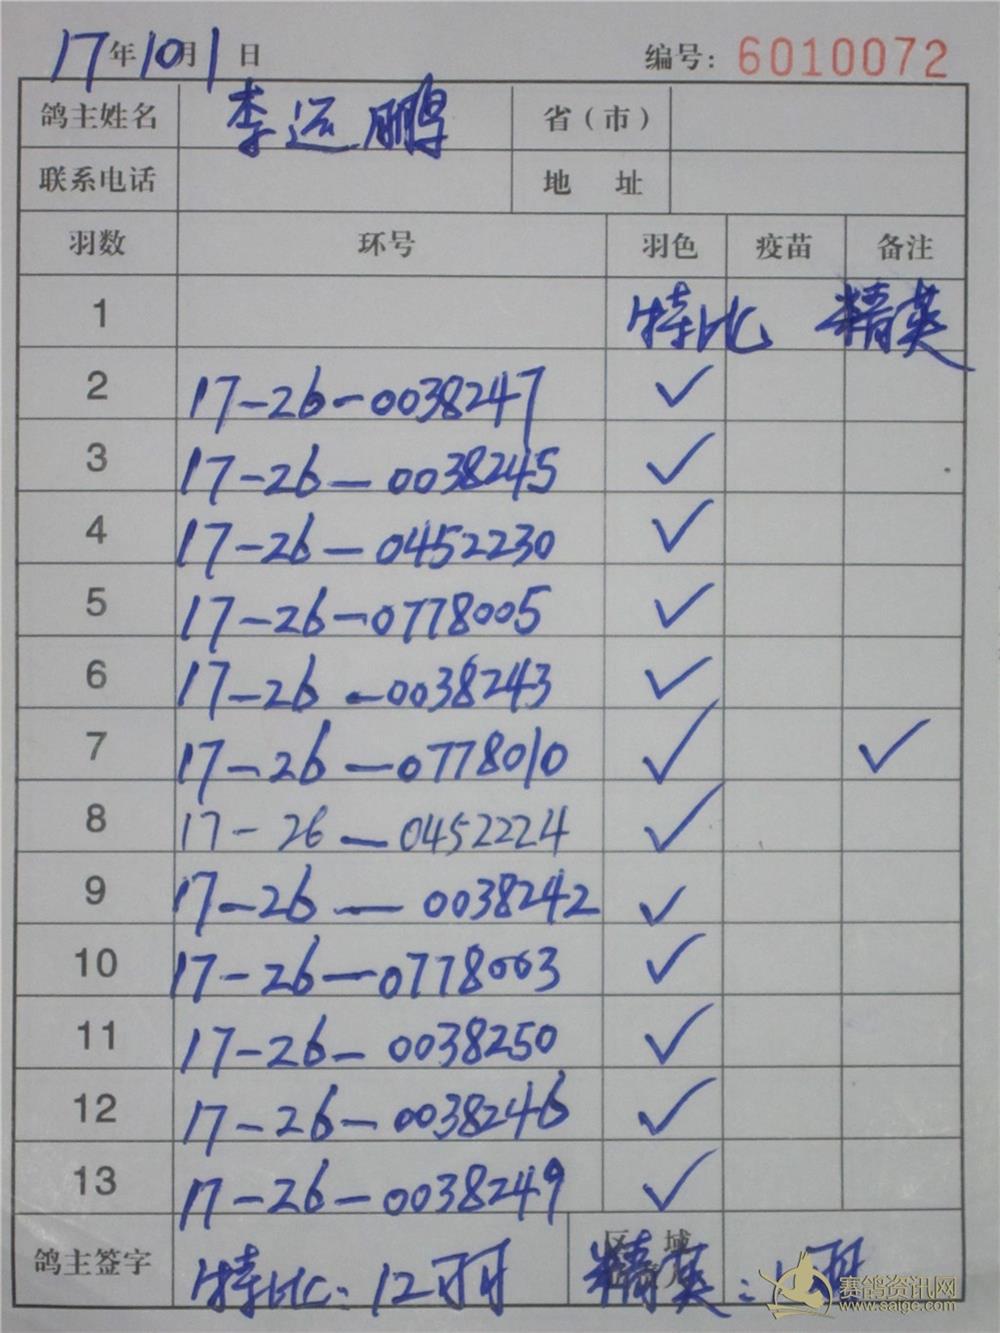 17年10月1日 编号: 6010072
鸽主姓名 李运鹏 省（市）
联系电话 地 址
羽数 环号 羽色 疫苗 备注
1 特比 精英
2 17-26-0038247 ✓
3 17-26-0038245 ✓
4 17-26-0452230 ✓
5 17-26-0778005 ✓
6 17-26-0038243 ✓
7 17-26-0778010 ✓ ✓
8 17-26-0452224 ✓
9 17-26-0038242 ✓
10 17-26-0778003 ✓
11 17-26-0038250 ✓
12 17-26-0038246 ✓
13 17-26-0038249 ✓
鸽主签字 特比：12羽 区域 精英：1羽
赛鸽资讯网
www.saige.com